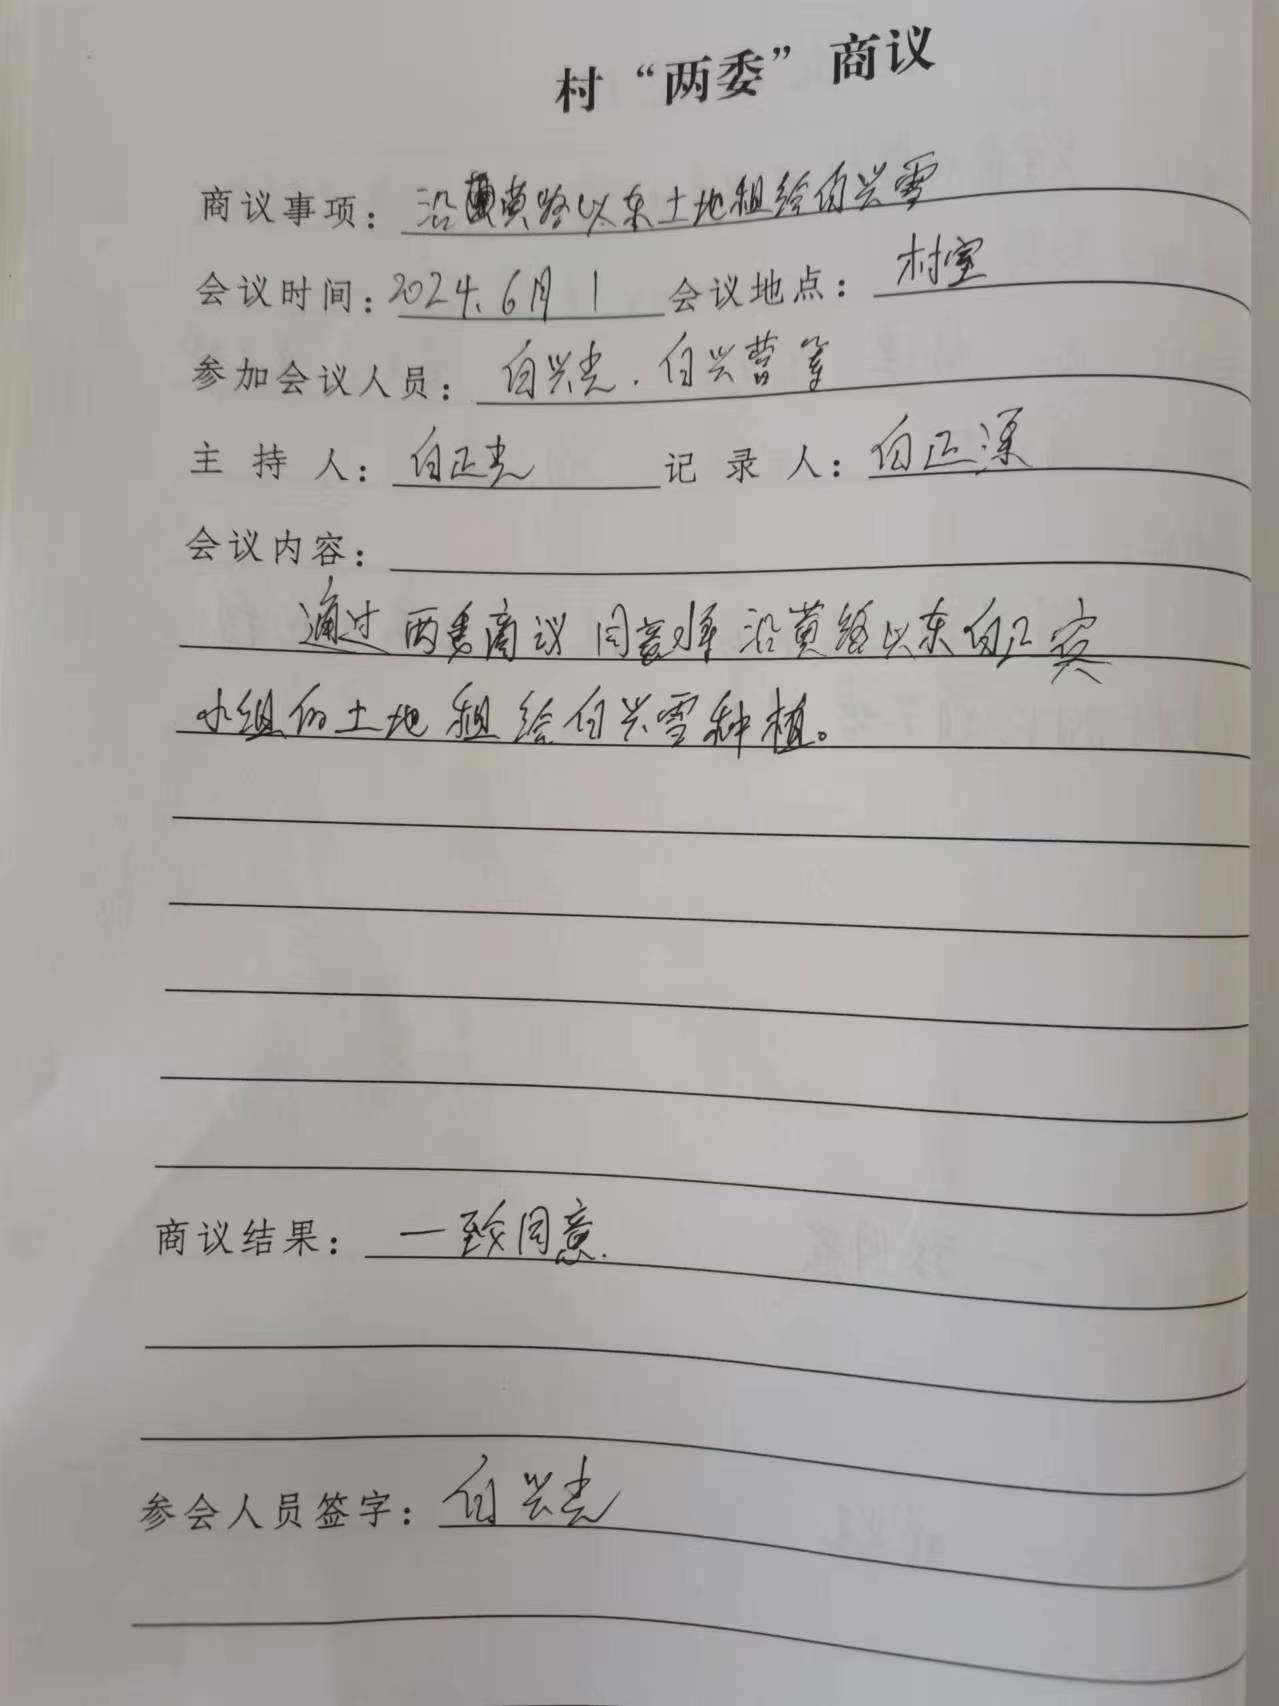 村“两委”商议
商议事项：沿黄路以东土地租给白兴雪
会议时间：2024.6月1 会议地点：村室
参加会议人员：白兴光.白兴营等
主持人：白正光 记录人：白正深
会议内容：
通过两委商议同意将沿黄路以东白正宾
小组的土地租给白兴雪种植。
商议结果：一致同意.
参会人员签字：白兴光